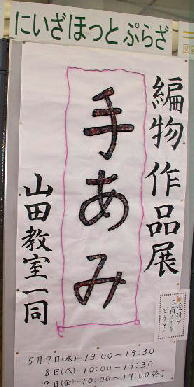 にいざほっとぷらざ
編物作品展
手あみ
山田教室一同
5月7日(水)~13:00~19:30
8日(木)~10:00~19:30